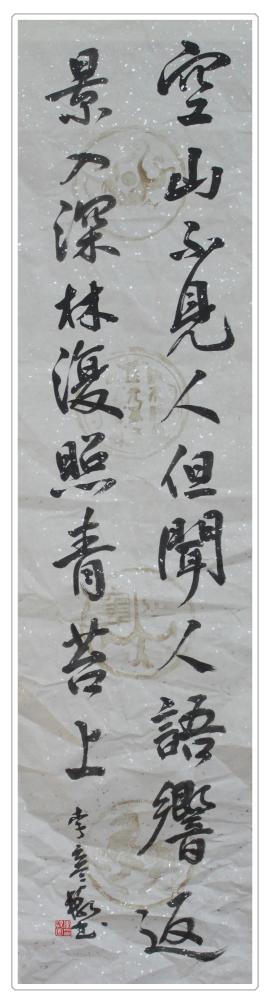 空山不見人但聞人語響返
景入深林復照青苔上
李彦